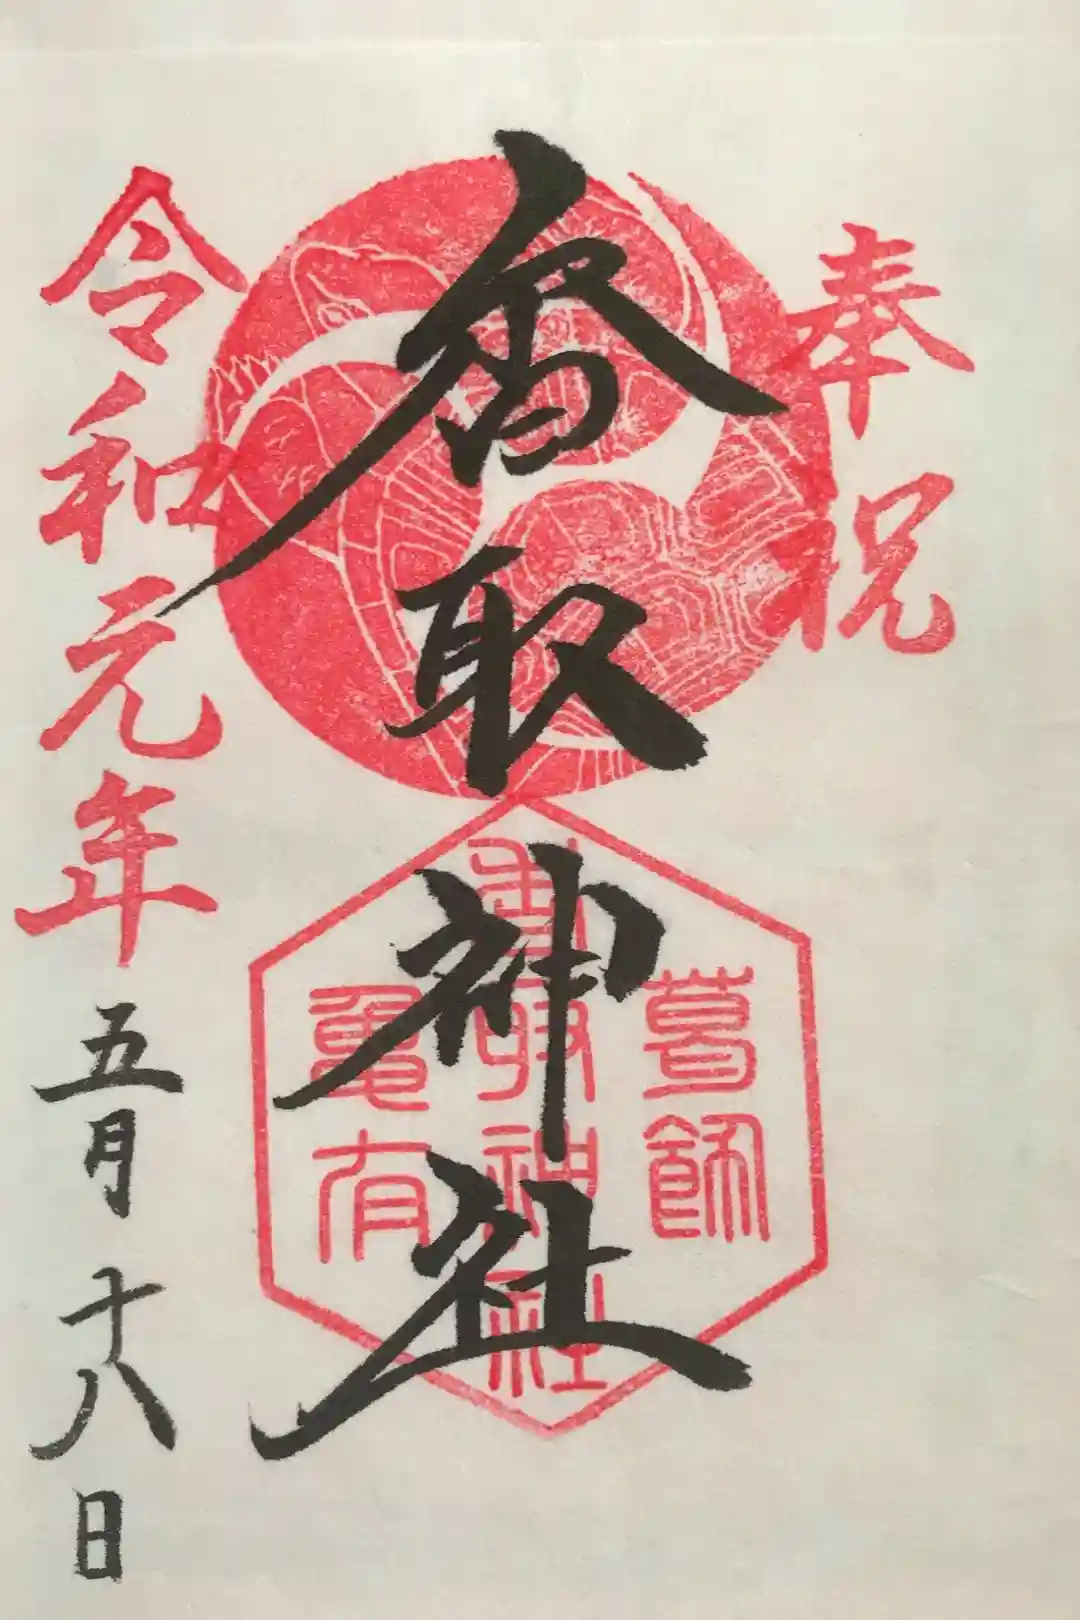 奉祝
香取神社
葛飾
香取神社
亀有
令和元年五月十八日